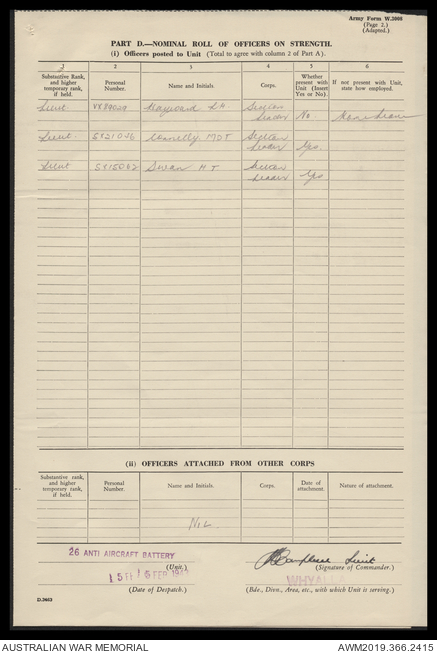 Army Form W.3008
(Page 2.)
(Adapted.)
PART D.—NOMINAL ROLL OF OFFICERS ON STRENGTH.
(i) Officers posted to Unit (Total to agree with column 2 of Part A).
1 2 3 4 5 6
Substantive Rank, and higher temporary rank, if held.
Personal Number.
Name and Initials.
Corps.
Whether present with Unit (Insert Yes or No).
If not present with Unit, state how employed.
Lieut Hayward Section
Leader No
Lieut. Connelly MDT Section
Leader Yes.
Lieut SX15062 Swan H T Section
Leader Yes
(ii) OFFICERS ATTACHED FROM OTHER CORPS
Substantive rank, and higher temporary rank, if held.
Personal Number.
Name and Initials.
Corps.
Date of attachment.
Nature of attachment.
NIL
26 ANTI AIRCRAFT BATTERY
(Unit.)
Lieut
(Signature of Commander.)
FEB
WHYALLA
(Date of Despatch.)
(Bde., Divn., Area, etc., with which Unit is serving.)
AUSTRALIAN WAR MEMORIAL
AWM2019.366.2415